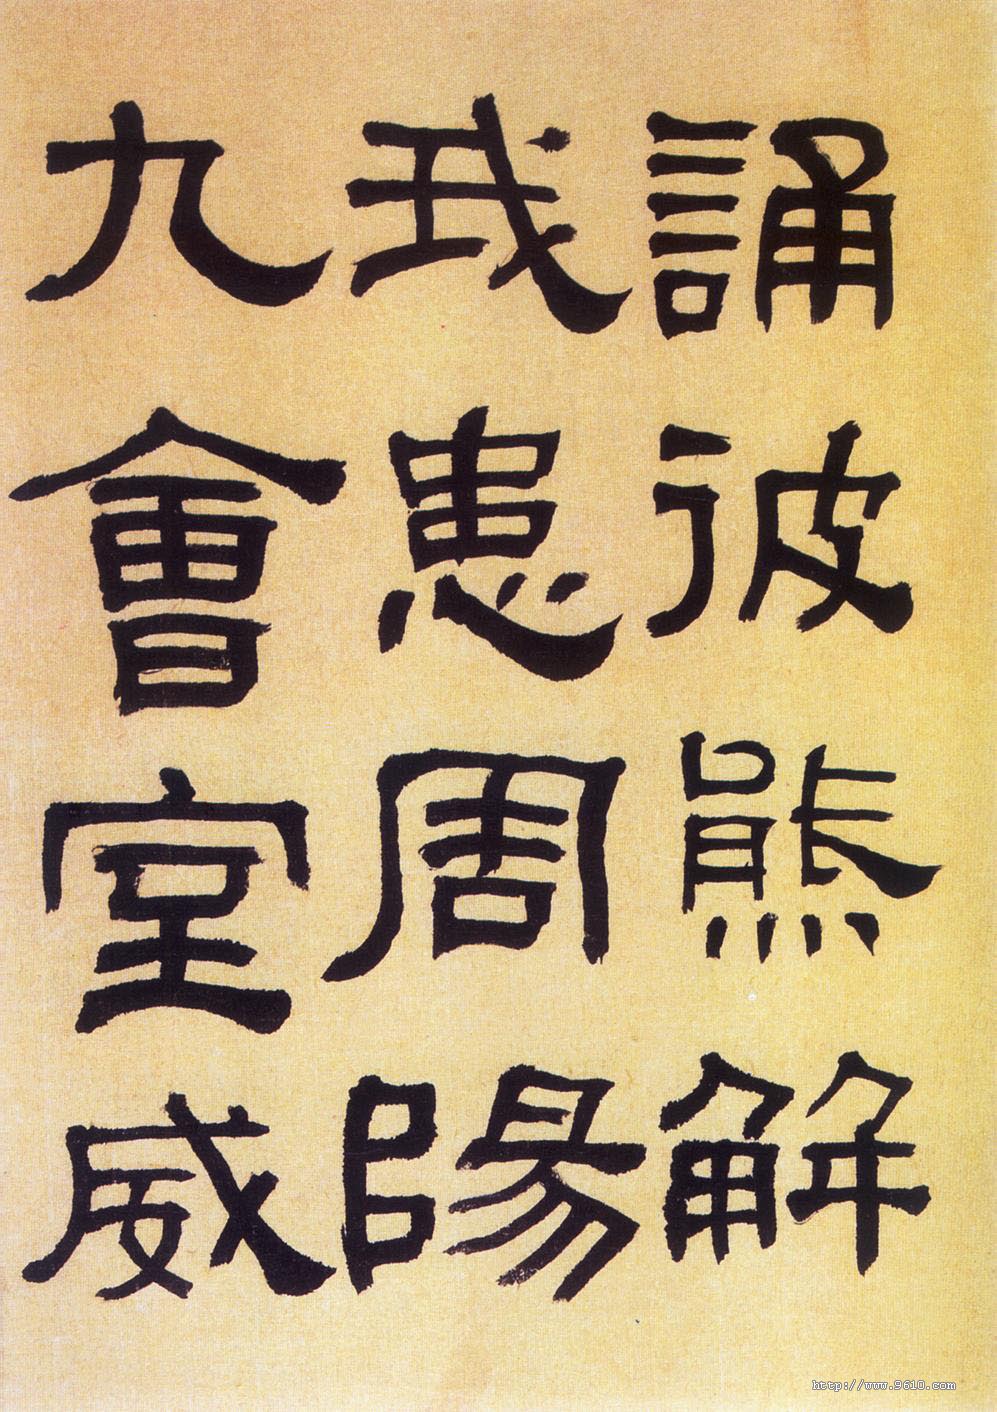 誦彼熊解
我患周陽
九會室威
http://www.9610.com